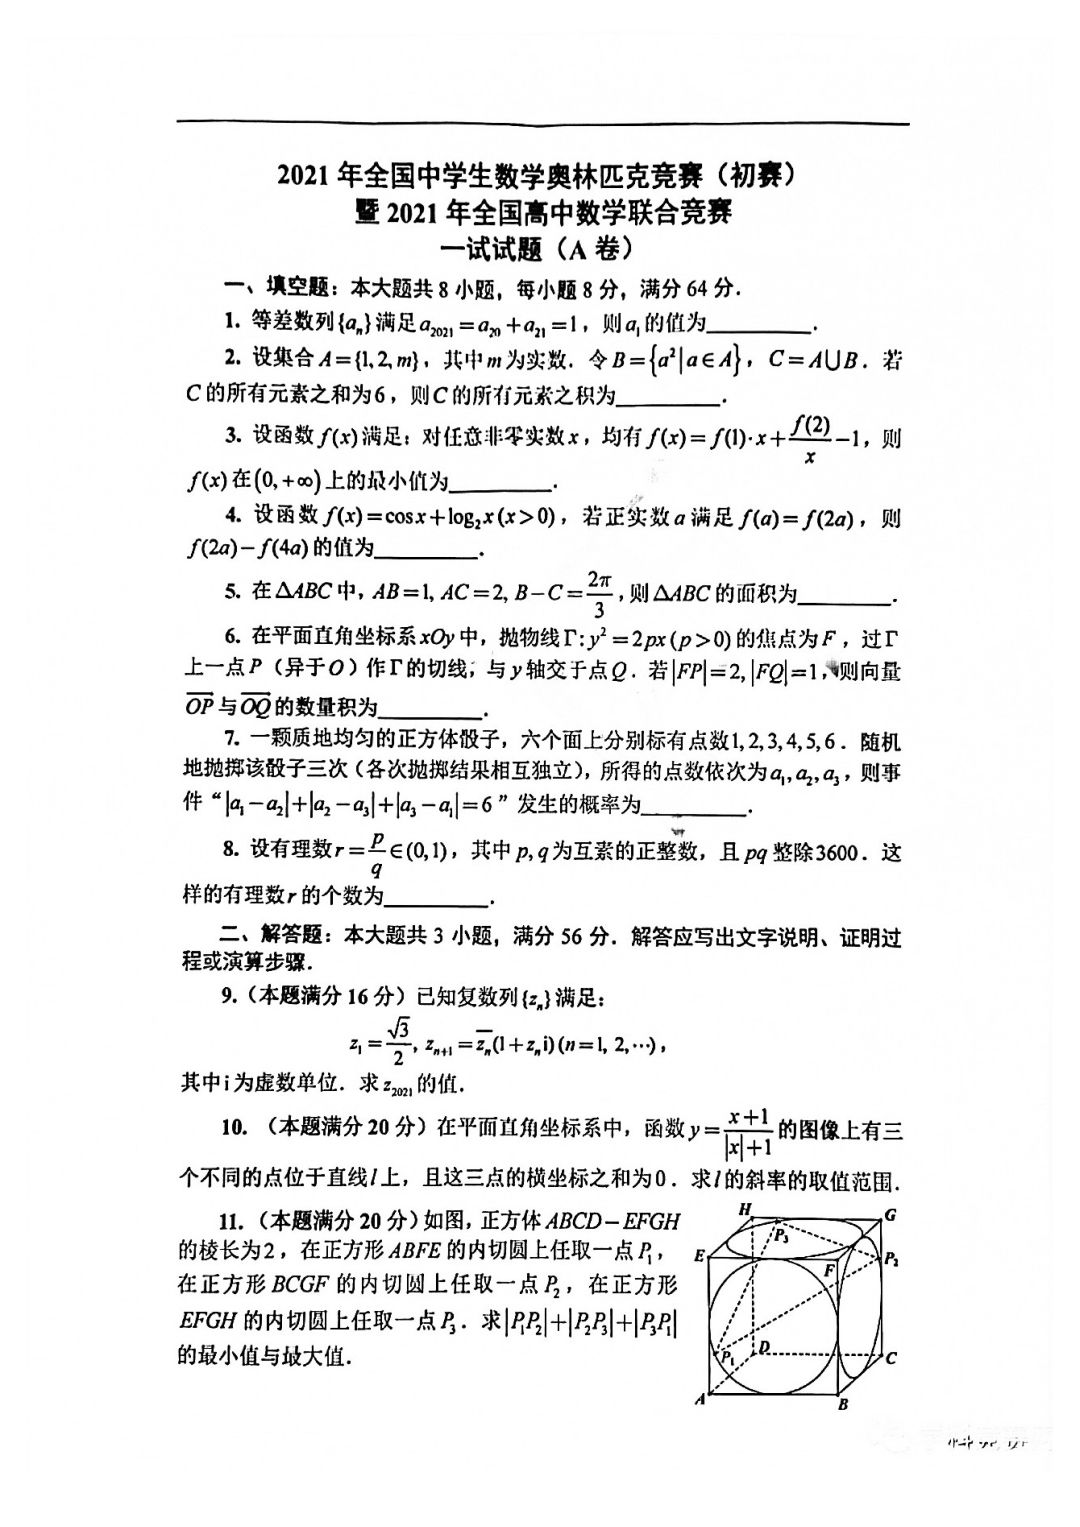 2021 年全国中学生数学奥林匹克竞赛（初赛）
暨 2021 年全国高中数学联合竞赛
一试试题（A 卷）
一、填空题：本大题共 8 小题，每小题 8 分，满分 64 分.
1. 等差数列{aₙ}满足a₂₀₂₁=a₂₀+a₂₁=1，则a₁的值为________.
2. 设集合A={1,2,m}，其中m为实数．令B={a²|a∈A}，C=A∪B．若
C的所有元素之和为6，则C的所有元素之积为________.
3. 设函数f(x)满足：对任意非零实数x，均有f(x)=f(1)·x+f(2)/x−1，则
f(x)在(0,+∞)上的最小值为________.
4. 设函数f(x)=cosx+log₂x(x>0)，若正实数a满足f(a)=f(2a)，则
f(2a)−f(4a)的值为________.
5. 在△ABC中，AB=1, AC=2, B−C=2π/3，则△ABC的面积为________.
6. 在平面直角坐标系xOy中，抛物线Γ:y²=2px(p>0)的焦点为F，过Γ
上一点P（异于O）作Γ的切线，与y轴交于点Q．若|FP|=2,|FQ|=1，则向量
OP与OQ的数量积为________.
7. 一颗质地均匀的正方体骰子，六个面上分别标有点数1,2,3,4,5,6．随机
地抛掷该骰子三次（各次抛掷结果相互独立），所得的点数依次为a₁,a₂,a₃，则事
件“|a₁−a₂|+|a₂−a₃|+|a₃−a₁|=6”发生的概率为________.
8. 设有理数r=p/q∈(0,1)，其中p,q为互素的正整数，且pq整除3600．这
样的有理数r的个数为________.
二、解答题：本大题共 3 小题，满分 56 分．解答应写出文字说明、证明过
程或演算步骤.
9.（本题满分 16 分）已知复数列{zₙ}满足：
z₁=√3/2, zₙ₊₁=z̅ₙ(1+zₙi)(n=1, 2,⋯)，
其中i为虚数单位．求z₂₀₂₁的值.
10. （本题满分 20 分）在平面直角坐标系中，函数y=(x+1)/(|x|+1)的图像上有三
个不同的点位于直线l上，且这三点的横坐标之和为0．求l的斜率的取值范围.
11.（本题满分 20 分）如图，正方体ABCD−EFGH
的棱长为2，在正方形ABFE的内切圆上任取一点P₁，
在正方形BCGF的内切圆上任取一点P₂，在正方形
EFGH的内切圆上任取一点P₃．求|P₁P₂|+|P₂P₃|+|P₃P₁|
的最小值与最大值.
H
G
P₃
E
F
P₂
P₁
D
C
A
B